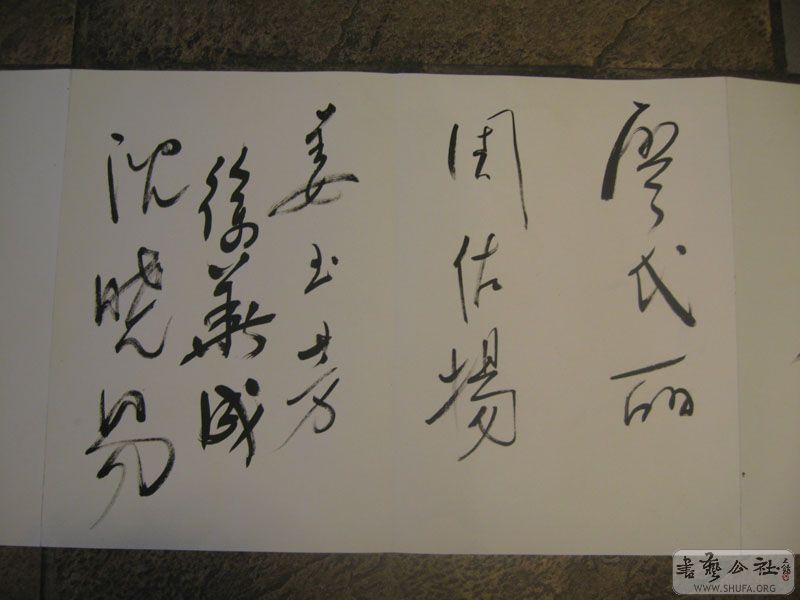 廖氏丽
周佑扬
姜玉芳
徐华成
沈晓易
書藝公社
WWW.SHUFA.ORG